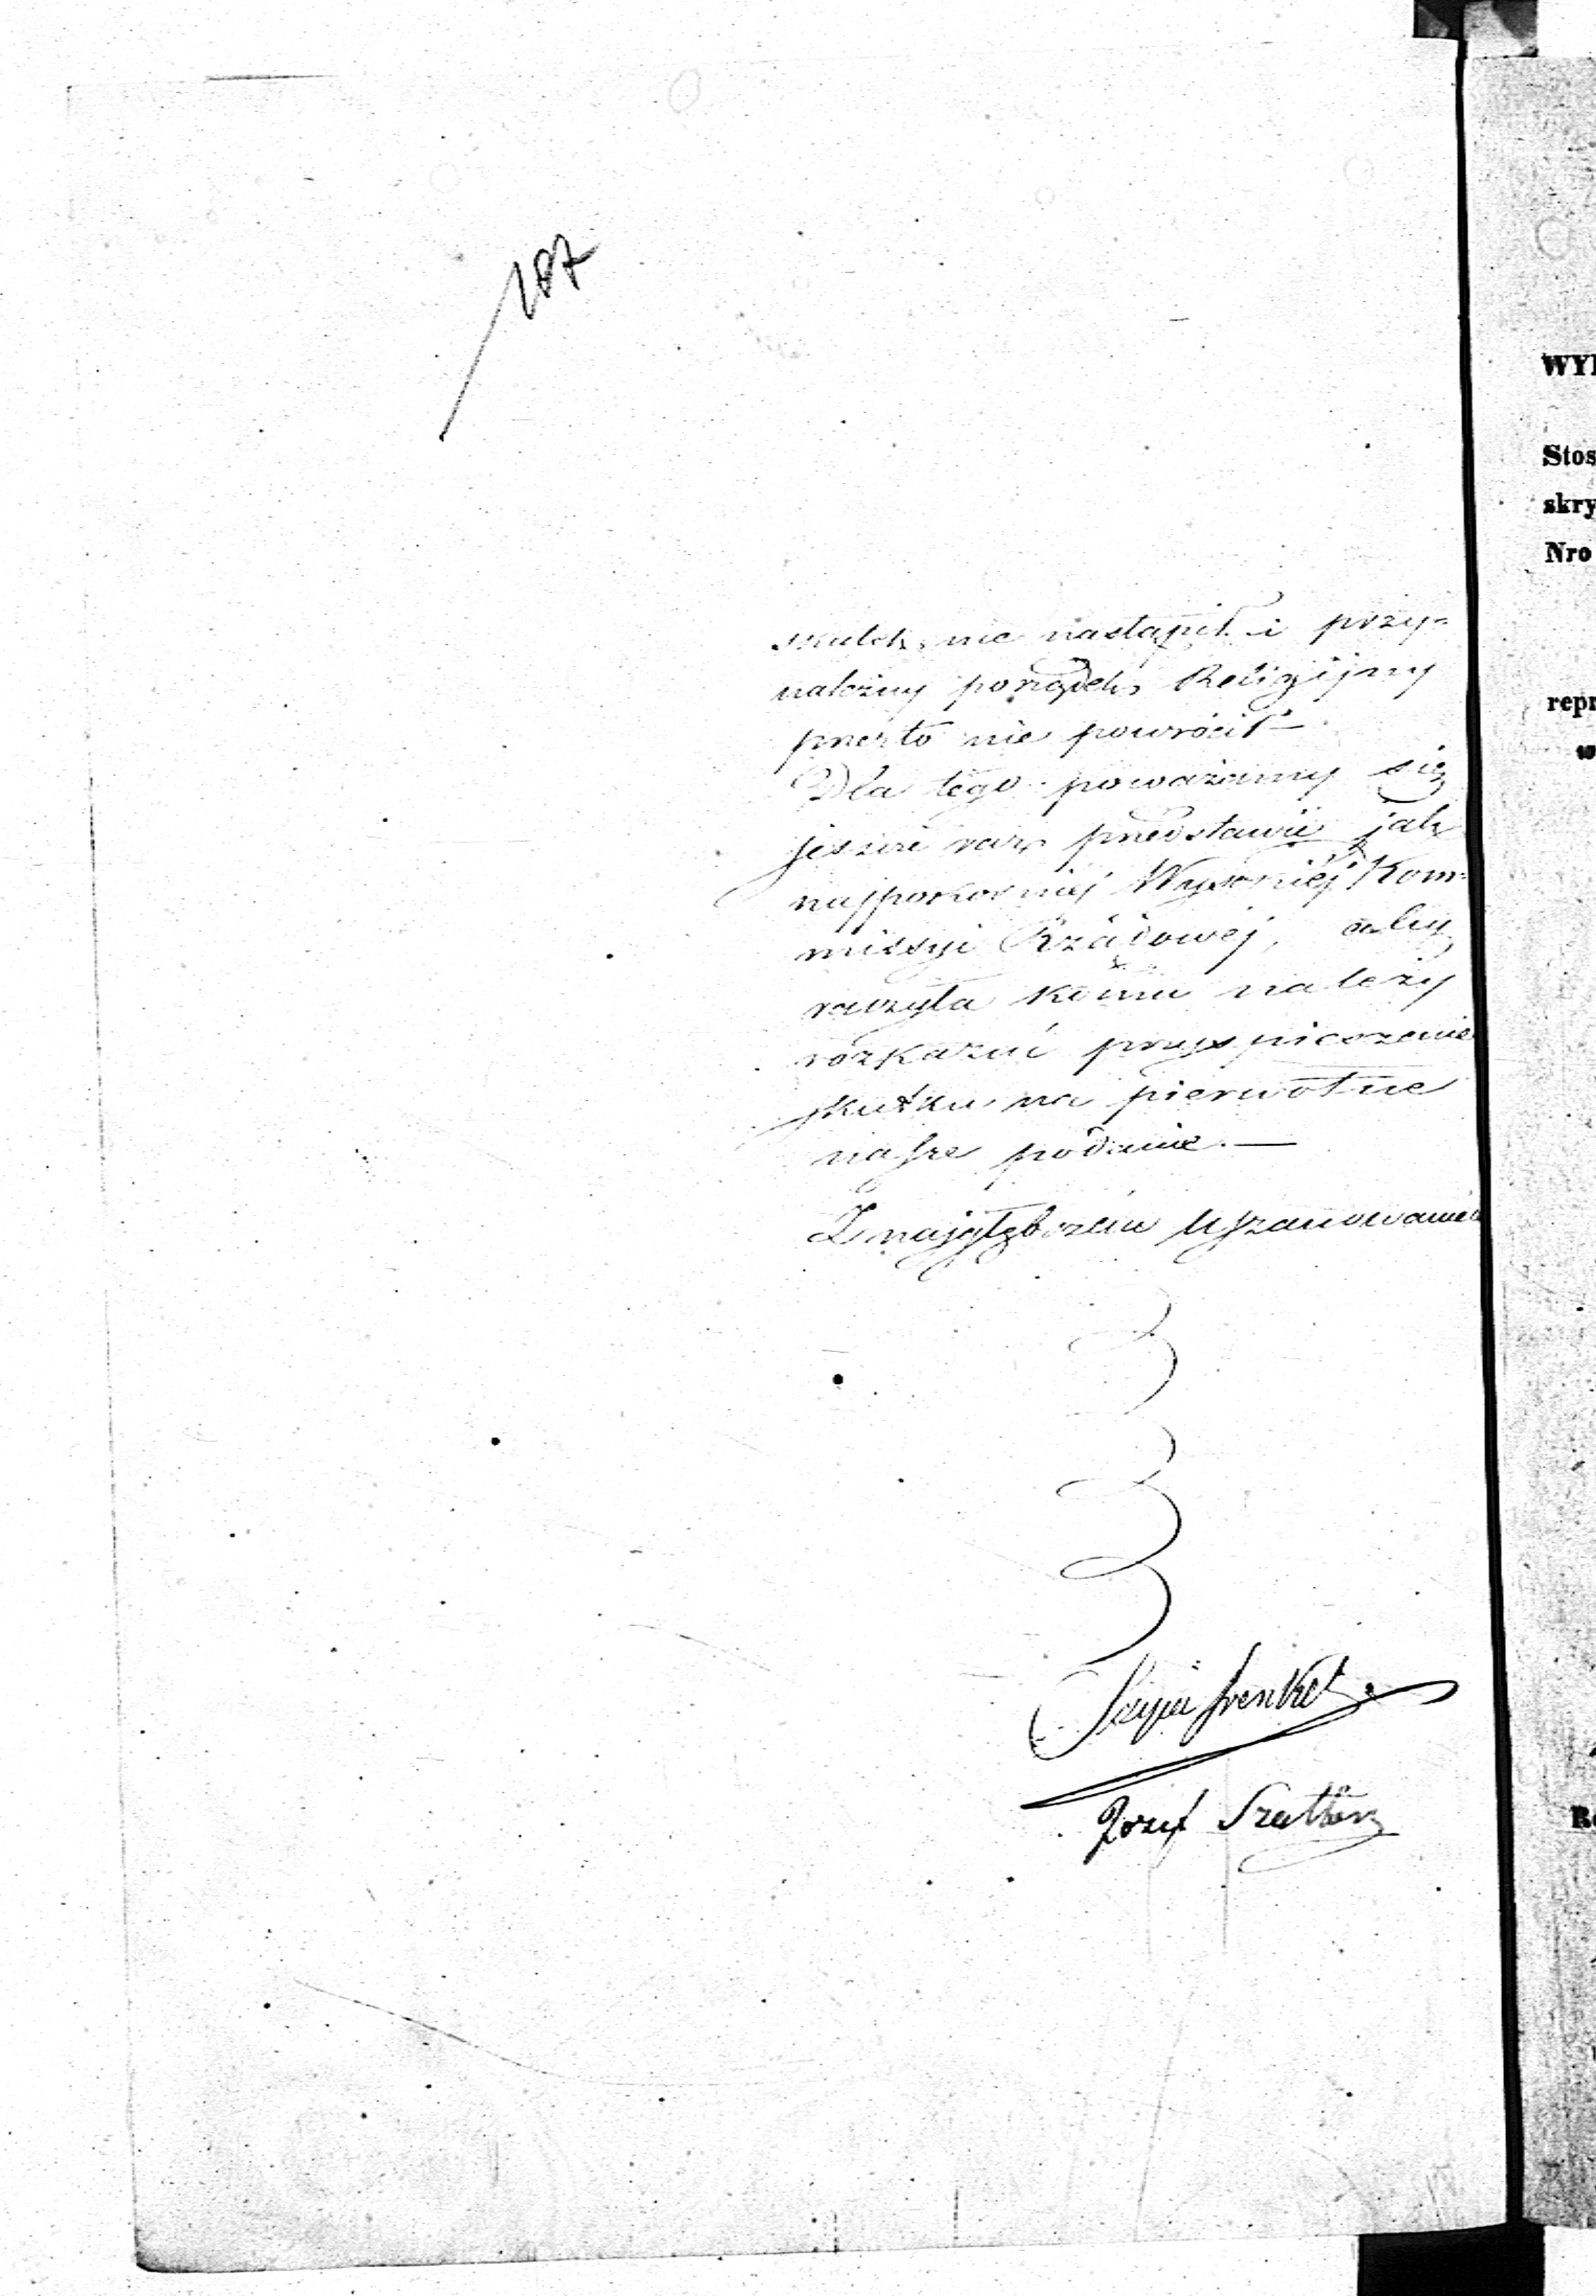 187
skutek nie nastąpił i przy=
należny porządek Religijny
przez to nie powrócił —
Dla tego poważamy się
jeszcze raz przedstawić jak
najpokorniej Wyższéj Kom=
missyi Rządowéj, aby
raczyła komu należy
rozkazać przyspieszenie
skutku na pierwotne
nasze podanie. —
Z najgłębszém uszanowaniem
Szyja Frenkel
Jozef
WY
Stos
skry
Nro
repr
w
R